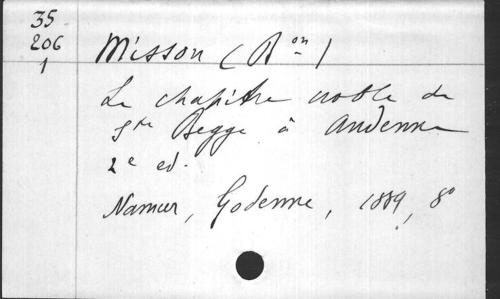 35
206
1
Misson (Bon)
Le chapitre noble de
Ste Begge à Andenne
2e ed.
Namur, Godenne, 1889, 8o